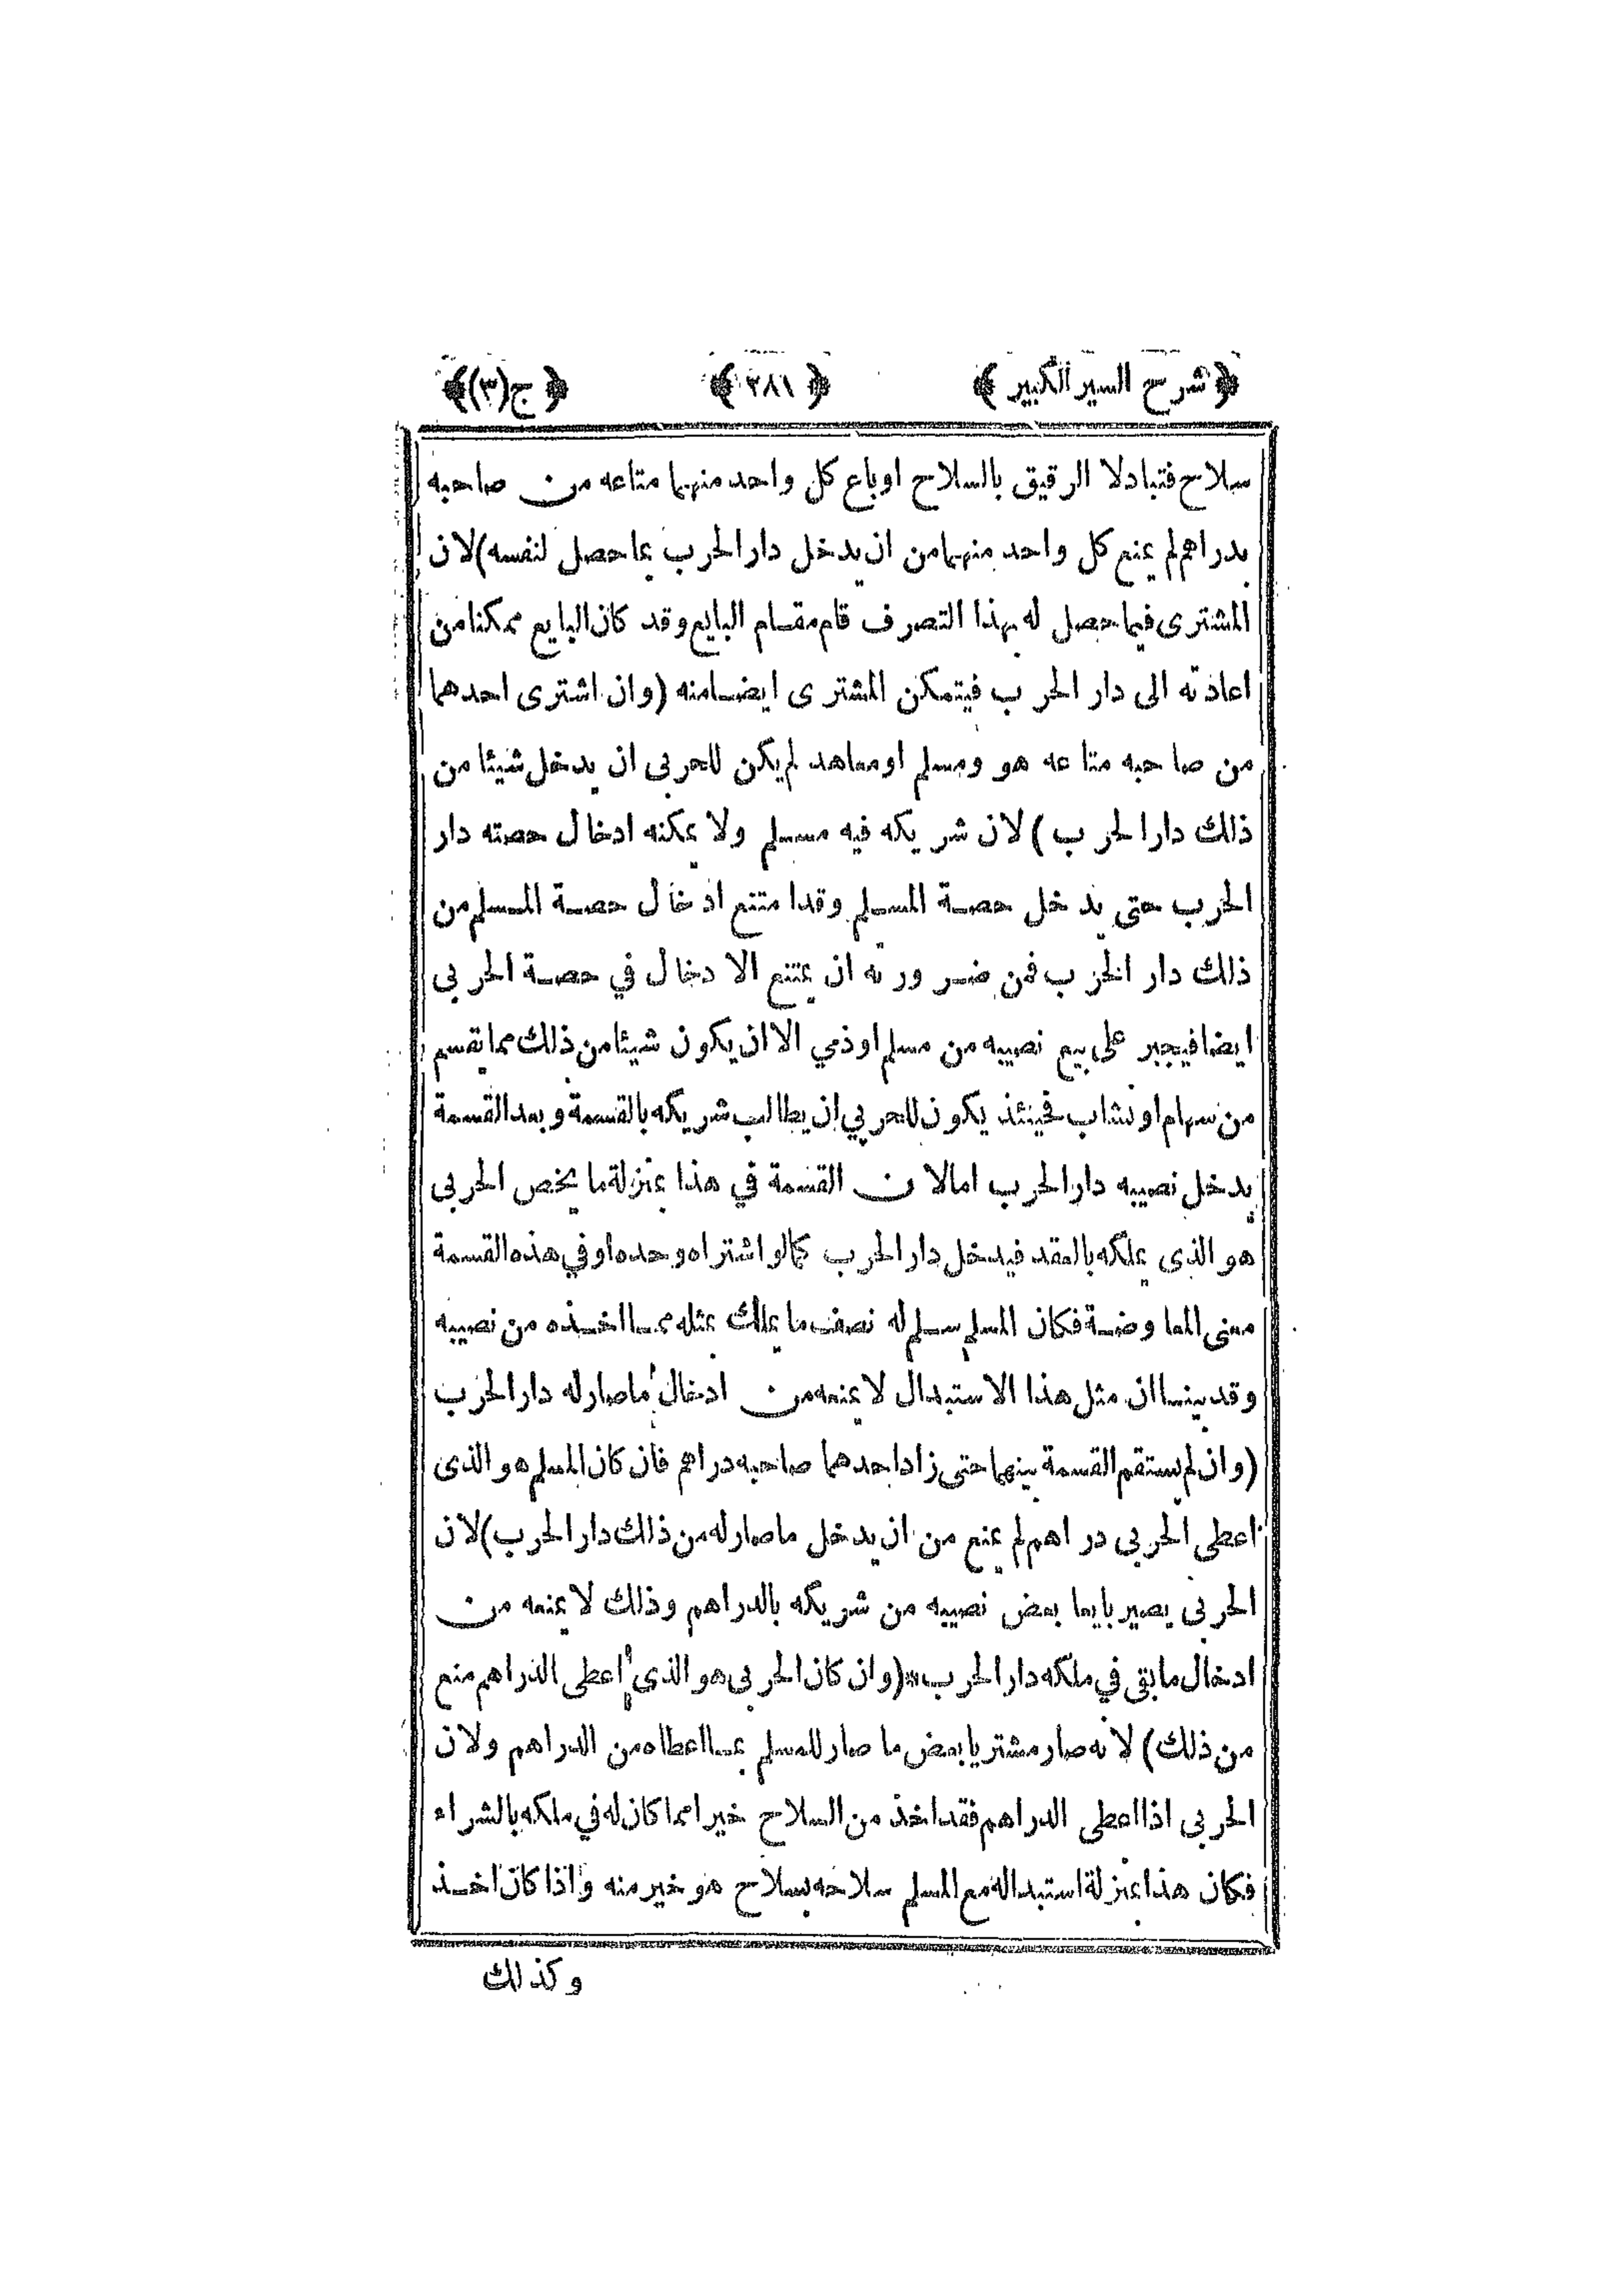 ﴿ شرح السير الكبير ﴾ ﴿ ٢٨١ ﴾ ﴿ ج (٣) ﴾
سلاح فتبادلا الرقيق بالسلاح او باع كل واحد منهما متاعه من صاحبه
بدراهم لم يمنع كل واحد منهما من ان يدخل دار الحرب بما حصل لنفسه) لان
المشترى فيما حصل له بهذا التصرف قام مقام البايع وقد كان البايع ممكنا من
اعادته الى دار الحرب فيتمكن المشترى ايضا منه (وان اشترى احدهما
من صاحبه متاعه هو ومسلم او معاهد لم يكن للحربى ان يدخل شيئا من
ذلك دار الحرب) لان شريكه فيه مسلم ولا يمكنه ادخال حصته دار
الحرب حتى يدخل حصة المسلم وقد امتنع ادخال حصة المسلم من
ذلك دار الحرب فمن ضرورته ان يمتنع الادخال في حصة الحربى
ايضا فيجبر على بيع نصيبه من مسلم او ذمي الا ان يكون شيئا من ذلك مما يقسم
من سهام او نشاب فحينئذ يكون للحربي ان يطالب شريكه بالقسمة وبعد القسمة
يدخل نصيبه دار الحرب اما لان القسمة في هذا بمنزلة ما يخص الحربى
هو الذى يملكه بالعقد فيدخل دار الحرب كما لو اشتراه وحده او في هذه القسمة
معنى المعاوضة فكان المسلم سلم له نصف ما يملك بمثله مما اخذه من نصيبه
وقد بينا ان مثل هذا الاستبدال لا يمنعه من ادخال ما صار له دار الحرب
(وان لم يستقم القسمة بينهما حتى زاد احدهما صاحبه دراهم فان كان المسلم هو الذى
اعطى الحربى دراهم لم يمنع من ان يدخل ما صار له من ذلك دار الحرب) لان
الحربى يصير بايعا بعض نصيبه من شريكه بالدراهم وذلك لا يمنعه من
ادخال ما بقى في ملكه دار الحرب* (وان كان الحربى هو الذى اعطى الدراهم منع
من ذلك) لانه صار مشتريا بعض ما صار للمسلم بما اعطاه من الدراهم ولان
الحربى اذا اعطى الدراهم فقد اخذ من السلاح خيرا مما كان له في ملكه بالشراء
فكان هذا بمنزلة استبداله مع المسلم سلاحه بسلاح هو خير منه واذا كان اخذ
وكذلك